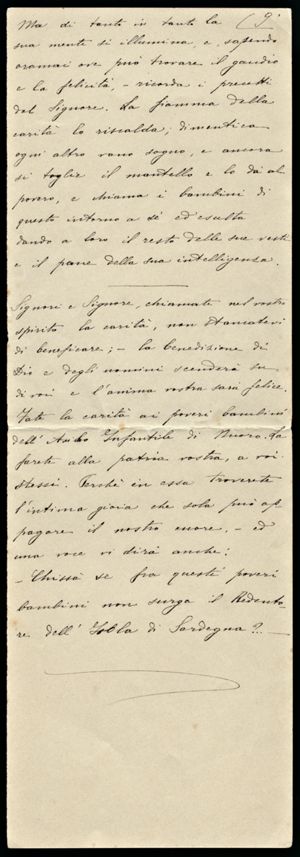 (9.
Ma di tanti in tanti la
sua mente si illumina, e, sapendo
oramai ove può trovare il gaudio
e la felicità, - ricorda i precetti
del Signore. La fiamma della
carità lo riscalda, dimentica
ogni altro vano sogno, e ancora
si toglie il mantello e lo dà al
povero, e chiama i bambini di
questi intorno a sè ed esulta
dando a loro il resto delle sue vesti
e il pane della sua intelligenza.
Signori e Signore, chiamate nel vostro
spirito la carità, non stancatevi
di beneficare; - la benedizione di
Dio e degli uomini scenderà su
di voi e l'anima vostra sarà felice.
Fate la carità ai poveri bambini
dell'Asilo Infantile di Nuoro. La
farete alla patria vostra, a voi
stessi. Perchè in essa troverete
l'intima gioia che sola può ap-
pagare il nostro cuore, - ed
una voce vi dirà anche:
- Chissà se fra questi poveri
bambini non surga il Redento-
re dell'Isola di Sardegna?.. -